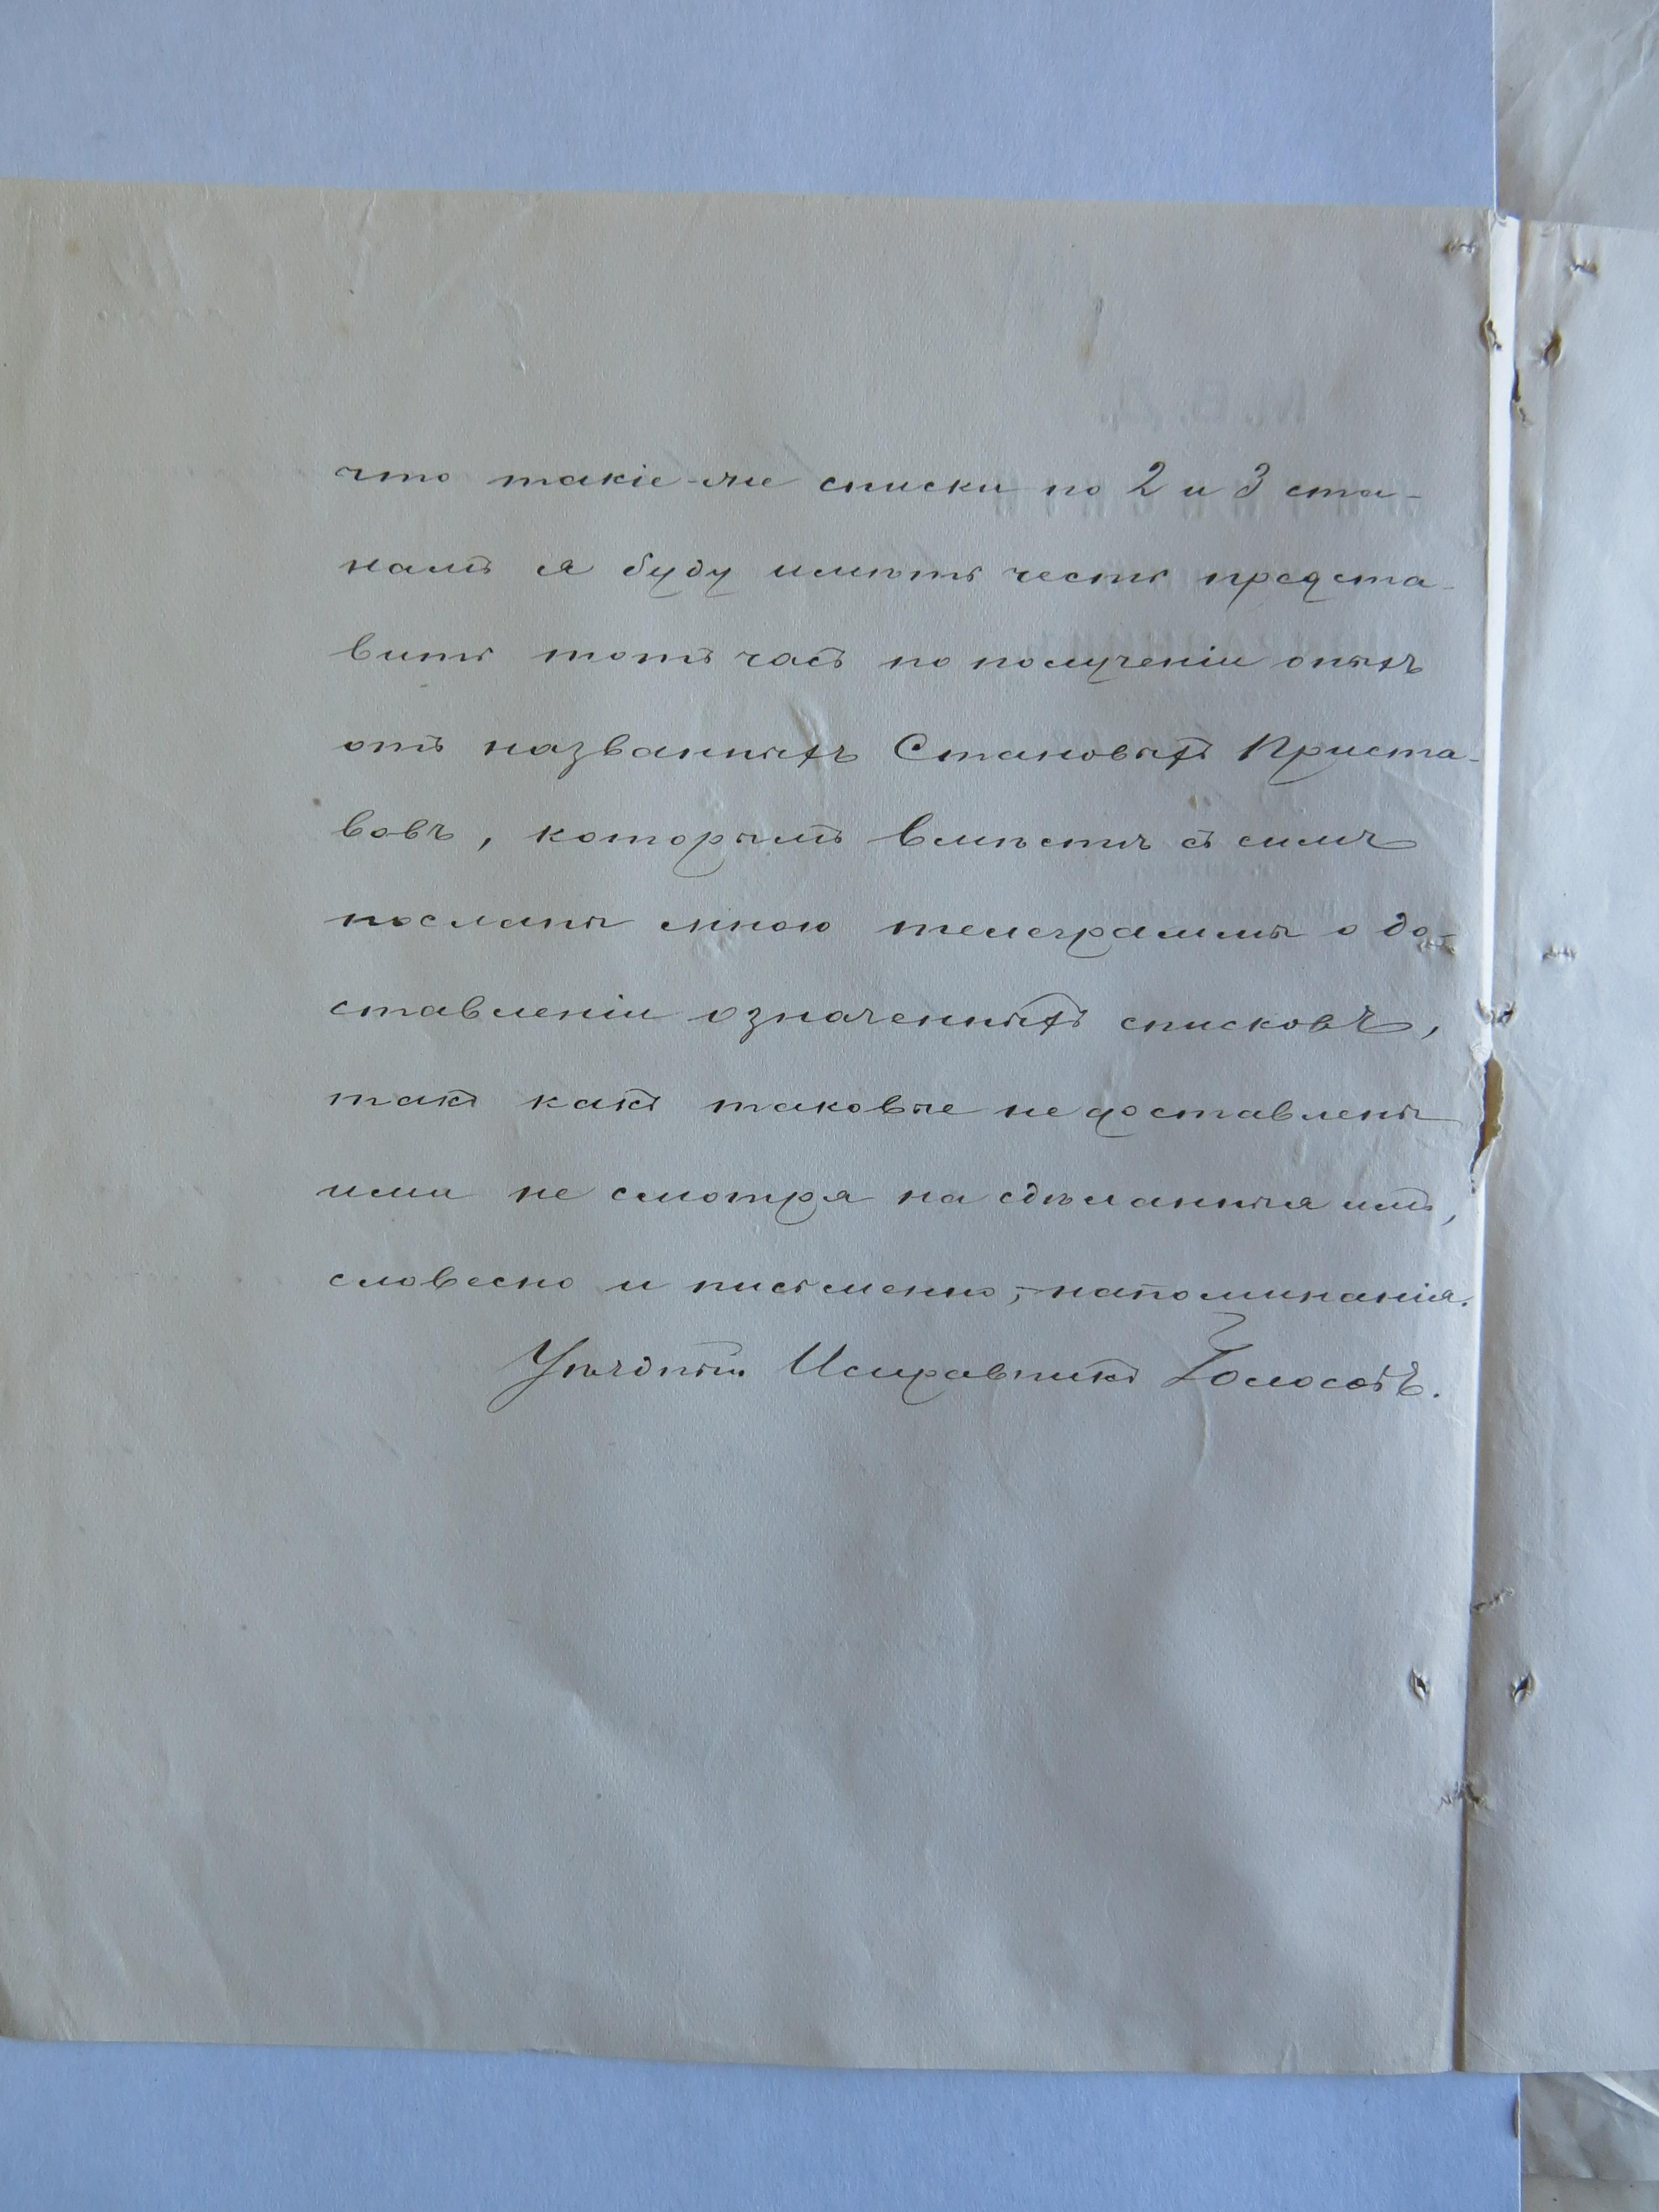 что такіе-же списки по 2 и 3 ста-
намъ я буду имѣть честь предста-
вить тотъ часъ по полученіи оныхъ
отъ названныхъ Становыхъ Приста-
вовъ, которымъ вмѣстѣ съ симъ
посланы мною телеграммы о до-
ставленіи означенныхъ списковъ,
такъ какъ таковые не доставлены
ими не смотря на сдѣланныя имъ,
словесно и письменно, - напоминанія.
Уѣздный Исправникъ